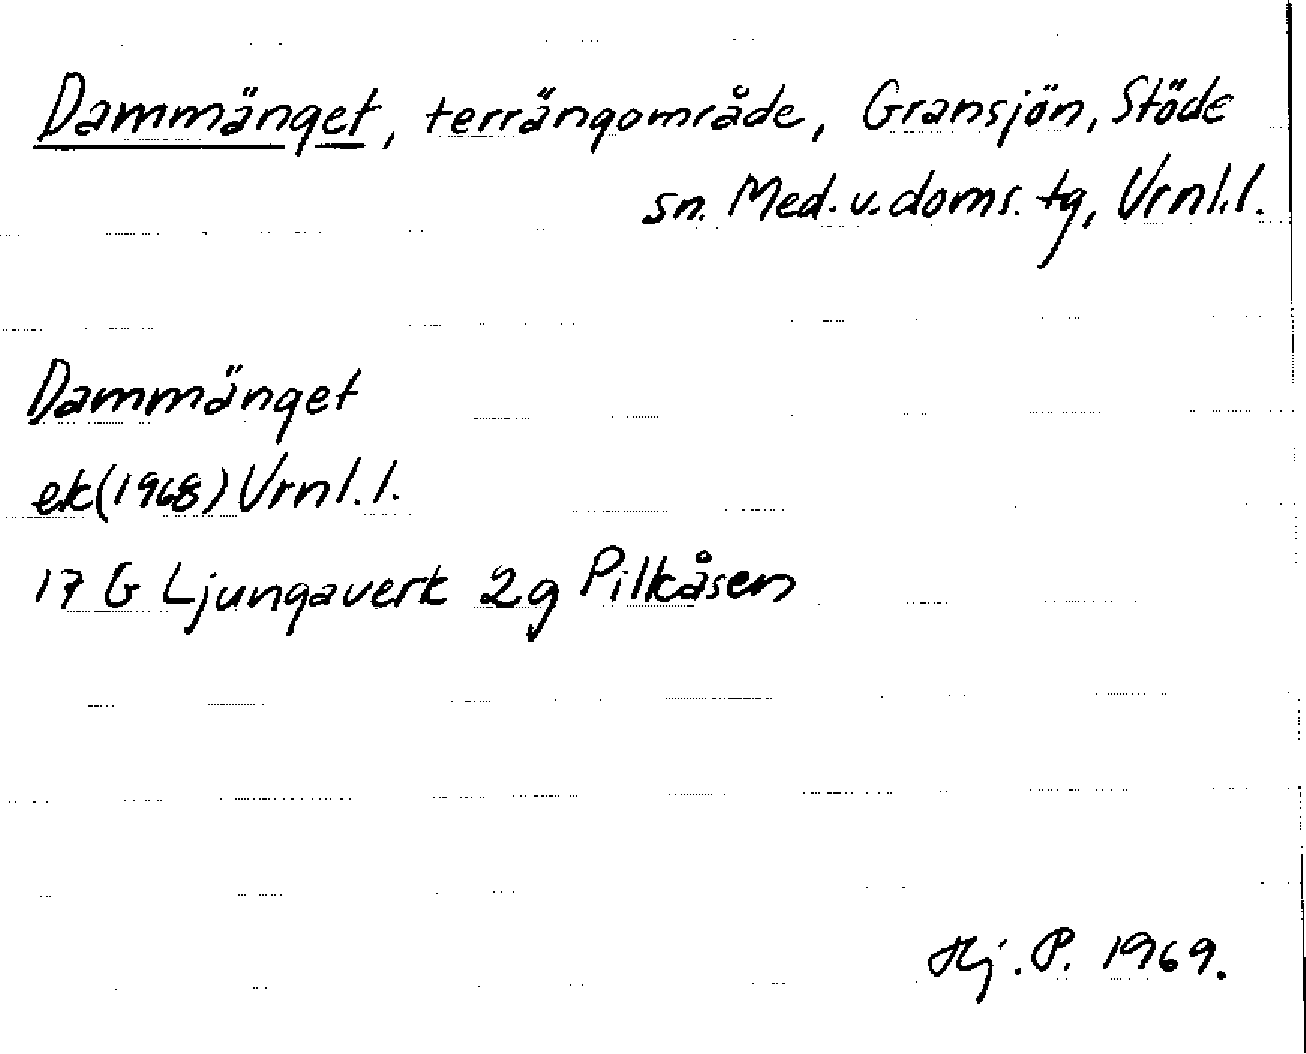 Dammänget, terrängområde, Gransjön, Stöde
sn. Med. v. doms. tg, Vrnl. l.
Dammänget
ek(1968) Vrnl. l.
17 G Ljungaverk 2g Pilkåsen
Hj. P. 1969.